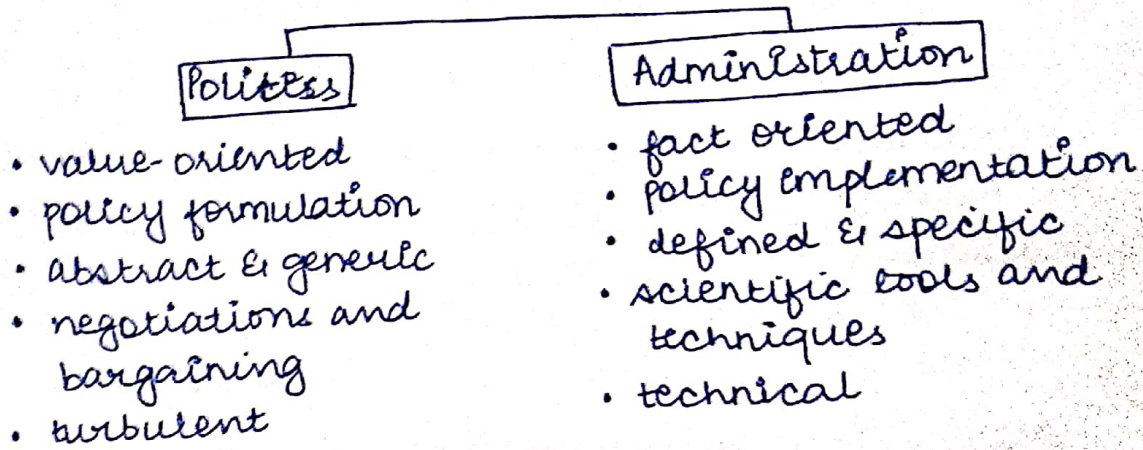 Politics
• value-oriented
• policy formulation
• abstract & generic
• negotiations and
bargaining
• turbulent
Administration
• fact oriented
• policy implementation
• defined & specific
• scientific tools and
techniques
• technical